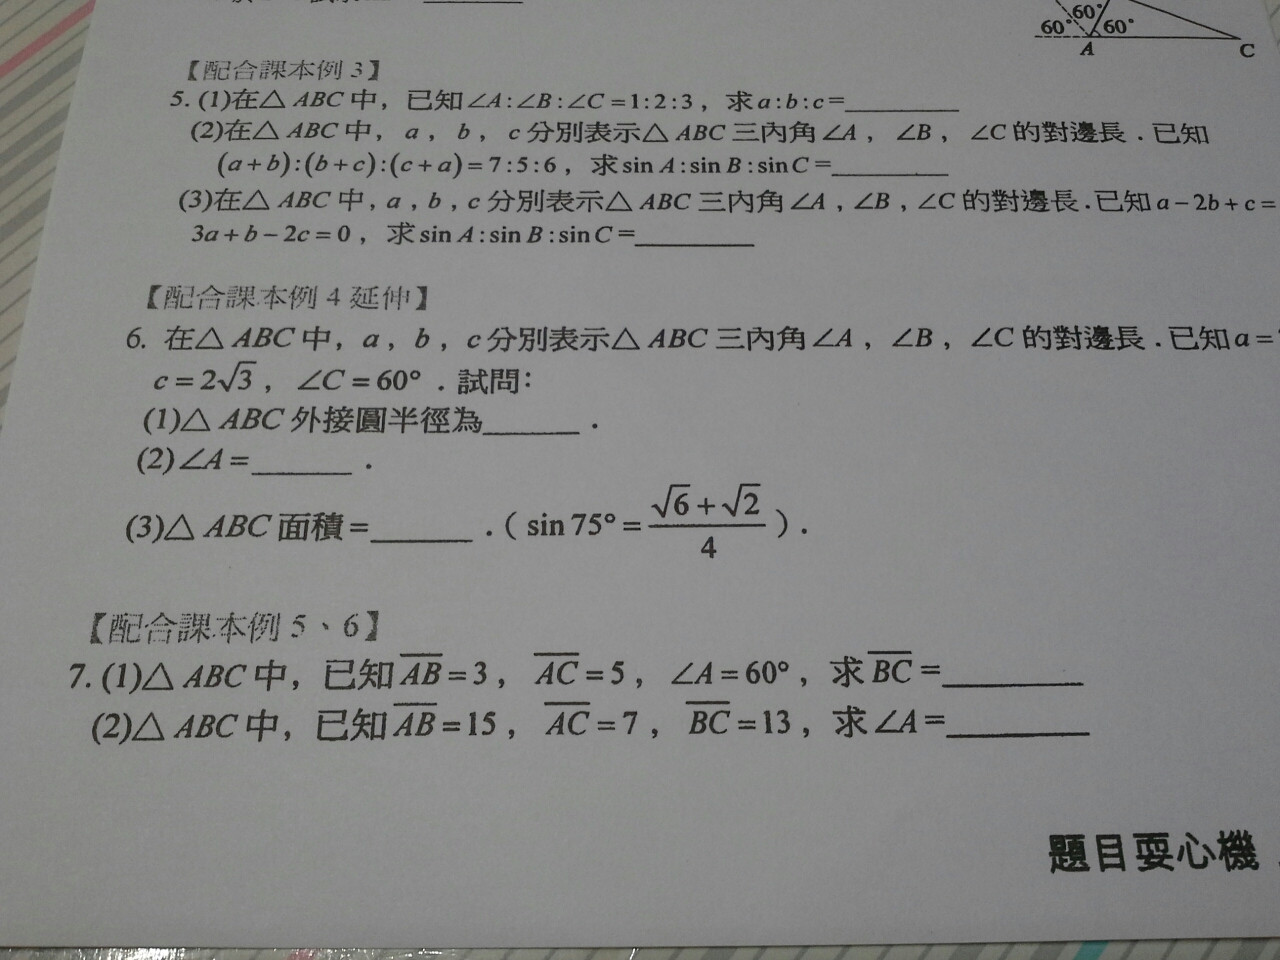 60° 60° 60°
A C
【配合課本例 3】
5. (1)在△ABC中，已知∠A:∠B:∠C=1:2:3，求a:b:c=
(2)在△ABC中，a，b，c分別表示△ABC三內角∠A，∠B，∠C的對邊長．已知
(a+b):(b+c):(c+a)=7:5:6，求sin A:sin B:sin C=
(3)在△ABC中，a，b，c分別表示△ABC三內角∠A，∠B，∠C的對邊長．已知a-2b+c=
3a+b-2c=0，求sin A:sin B:sin C=
【配合課本例 4 延伸】
6. 在△ABC中，a，b，c分別表示△ABC三內角∠A，∠B，∠C的對邊長．已知a=
c=2√3，∠C=60°．試問：
(1)△ABC外接圓半徑為______．
(2)∠A=______．
(3)△ABC面積=______．（sin 75°=(√6+√2)/4）．
【配合課本例 5、6】
7. (1)△ABC中，已知AB=3，AC=5，∠A=60°，求BC=
(2)△ABC中，已知AB=15，AC=7，BC=13，求∠A=
題目耍心機